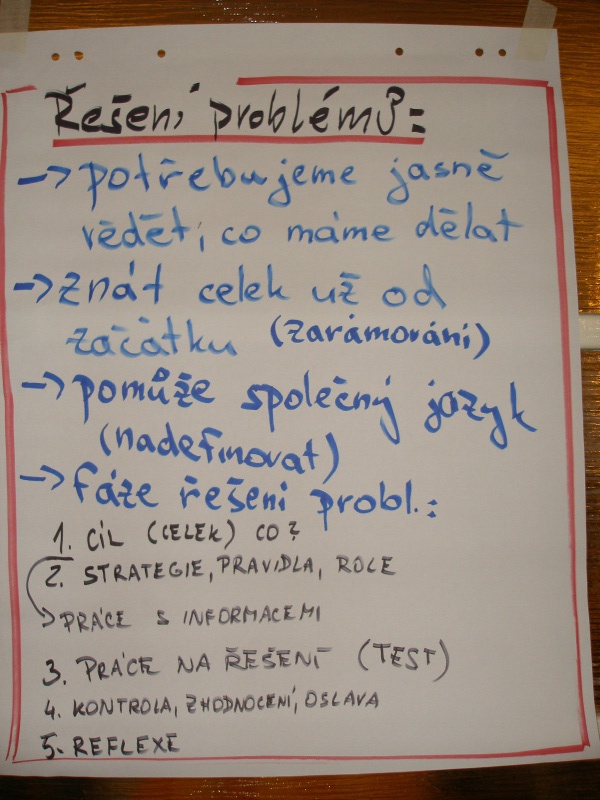 Řešení problémů:
→ potřebujeme jasně
vědět, co máme dělat
→ znát celek už od
začátku (zarámování)
→ pomůže společný jazyk
(nadefinovat)
→ fáze řešení probl.:
1. CÍL (CELEK) CO?
2. STRATEGIE, PRAVIDLA, ROLE
→ PRÁCE S INFORMACEMI
3. PRÁCE NA ŘEŠENÍ (TEST)
4. KONTROLA, ZHODNOCENÍ, OSLAVA
5. REFLEXE